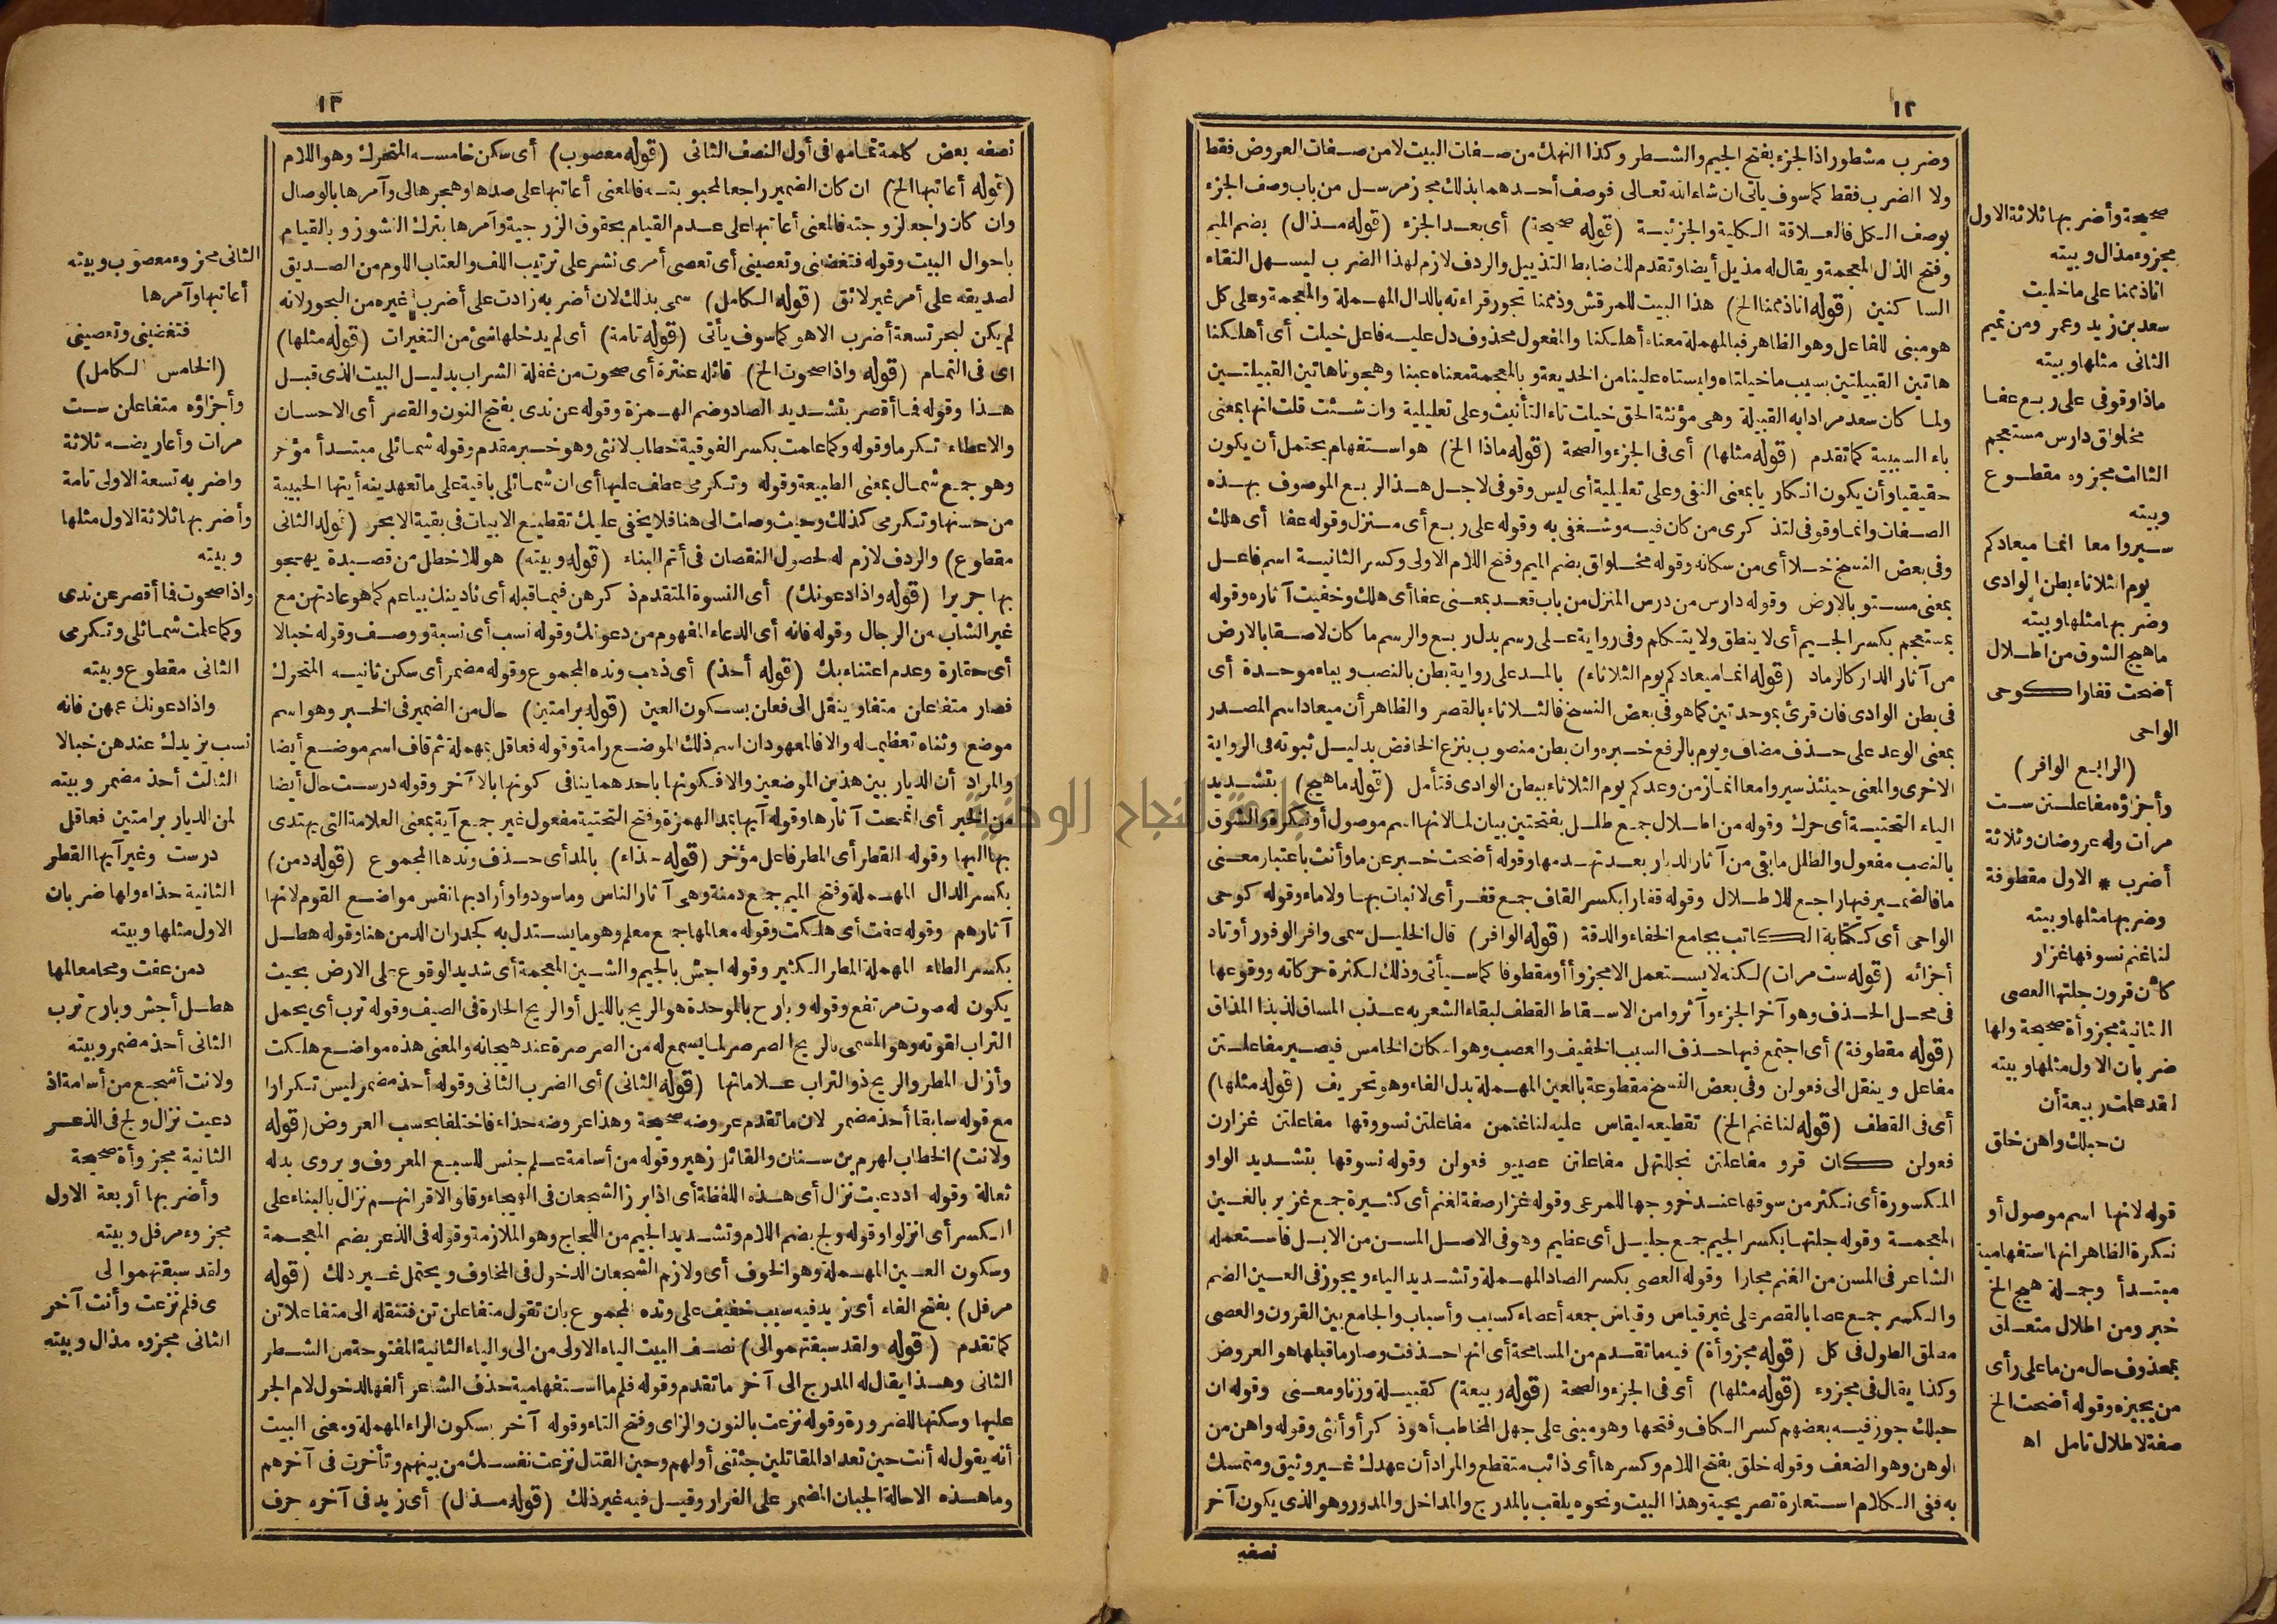 ١٢
وضرب مشطور اذا لجزء بفتح الجيم والشطر وكذا النهك من صفات البيت لا من صفات العروض فقط
ولا الضرب فقط كما سوف يأتى ان شاء الله تعالى فوصف أحدهما بذلك مجاز مرسل من باب وصف الجزء
بوصف الكل فالعلاقة الكلية والجزئية (قوله صحيحة) أى بعد الجزء (قوله مذال) بضم الميم
وفتح الذال المعجمة ويقال له مذيل أيضا وتقدم لك ضابط التذييل والردف لازم لهذا الضرب ليسهل التقاء
الساكنين (قوله اناذممنا الخ) هذا البيت للمرقش وذممنا تجوز قراءته بالدال المهملة والمعجمة وعلى كل
هو مبنى للفاعل وهو الظاهر فبالمهملة معناه أهلكنا والمفعول محذوف دل عليه فاعل خيلت أى أهلكنا
هاتين القبيلتين بسبب ما خيلتاه ولبستاه علينا من الخديعة وبالمعجمة معناه عبنا وهجونا هاتين القبيلتين
ولما كان سعد مرادا به القبيلة وهى مؤنثة الحق خيلت تاء التأنيث وعلى تعليلية وان شئت قلت انها بمعنى
باء السببية كما تقدم (قوله مثلها) أى فى الجزء والصحة (قوله ماذا الخ) هو استفهام يحتمل أن يكون
حقيقيا وأن يكون انكاريا بمعنى النفى وعلى تعليلية أى ليس وقوفى لاجل هذا الربع الموصوف بهذه
الصفات وانما وقوفى لتذكرى من كان فيه وشغفى به وقوله على ربع أى منزل وقوله عفا أى هلك
وفى بعض النسخ خلا أى من سكانه وقوله مخلولق بضم الميم وفتح اللام الاولى وكسر الثانية اسم فاعل
بمعنى مستو بالارض وقوله دارس من درس المنزل من باب قعد بمعنى عفا أى هلك وخفيت آثاره وقوله
مستعجم بكسر الجيم أى لا ينطق ولا يتكلم وفى رواية على رسم بدل ربع والرسم ما كان لاصقا بالارض
من آثار الدار كالرماد (قوله انما ميعادكم يوم الثلاثاء) بالمد على رواية بطن بالنصب وبباء موحدة أى
فى بطن الوادى فان قرئ بموحدتين كما هو فى بعض النسخ فالثلاثاء بالقصر والظاهر أن ميعاد اسم المصدر
بمعنى الوعد على حذف مضاف ويوم بالرفع خبره وان بطن منصوب بنزع الخافض بدليل ثبوته فى الرواية
الاخرى والمعنى حينئذ سيروا معا انما زمن وعدكم يوم الثلاثاء ببطن الوادى فتأمل (قوله ما هيج) بتشديد
الياء التحتية أى حرك وقوله من اطلال جمع طلل بفتحتين بيان لما لانها اسم موصول أو نكرة والشوق
بالنصب مفعول والطلل ما بقى من آثار الديار بعد تهدمها وقوله أضحت خبر عن ما وأنت باعتبار معنى
ما فالضمير فيها راجع للاطلال وقوله قفارا بكسر القاف جمع قفر أى لانبات بها ولا ماء وقوله كوحى
الواحى أى ككتابة الكاتب بجامع الخفاء والدقة (قوله الوافر) قال الخليل سمى وافر الوفور أوتاد
أجزائه (قوله ست مرات) لكنه لا يستعمل الا مجزوأ أو مقطوفا كما سيأتى وذلك لكثرة حركاته ووقوعها
فى محل الحذف وهو آخر الجزء وآثروا من الاسقاط القطف لبقاء الشعر به عذب المساق لذيذ المذاق
(قوله مقطوفة) أى اجتمع فيها حذف السبب الخفيف والعصب وهو اسكان الخامس فيصير مفاعلتن
مفاعل وينقل الى فعولن وفى بعض النسخ مقطوعة بالعين المهملة بدل الفاء وهو تحريف (قوله مثلها)
أى فى القطف (قوله لنا غنم الخ) تقطيعه ليقاس عليه لنا غنمن مفاعلتن نسووقها مفاعلتن غزارن
فعولن كان قرو مفاعلتن نجللتهل مفاعلتن عصييو فعولن وقوله نسوقها بتشديد الواو
المكسورة أى نكثر من سوقها عند خروجها للمرعى وقوله غزار صفة لغنم أى كثيرة جمع غزير بالغين
المعجمة وقوله جلتها بكسر الجيم جمع جليل أى عظيم وهو فى الاصل المسن من الابل فاستعمله
الشاعر فى المسن من الغنم مجازا وقوله العصى بكسر الصاد المهملة وتشديد الياء ويجوز فى العين الضم
والكسر جمع عصا بالقصر على غير قياس وقياس جمعه أعصاء كسبب وأسباب والجامع بين القرون والعصى
مطلق الطول فى كل (قوله مجزوأة) فيه ما تقدم من المسامحة أى انها حذفت وصار ما قبلها هو العروض
وكذا يقال فى مجزوء (قوله مثلها) أى فى الجزء والصحة (قوله ربيعة) كقبيلة وزنا ومعنى وقوله ان
حبلك جوز فيه بعضهم كسر الكاف وفتحها وهو مبنى على جهل المخاطب أهو ذكر أو أنثى وقوله واهن من
الوهن وهو الضعف وقوله خلق بفتح اللام وكسرها أى ذائب متقطع والمراد أن عهدك غير وثيق ومتمسك
به ففى الكلام استعارة تصريحية وهذا البيت ونحوه يلقب بالمدرج والمداخل والمدور وهو الذى يكون آخر
نصفه
صحيحة وأضربها ثلاثة الاول
مجزوء مذال وبيته
اناذممنا على ما خليت
سعد بن زيد وعمر ومن تميم
الثانى مثلها وبيته
ماذا وقوفى على ربع عفا
مخلولق دارس مستعجم
الثالث مجزوء مقطوع
وبيته
سيروا معا انما ميعادكم
يوم الثلاثاء بطن الوادى
وضربها مثلها وبيته
ما هيج الشوق من اطلال
أضحت قفارا كوحى
الواحى
(الرابع الوافر)
وأجزاؤه مفاعلتن ست
مرات وله عروضان وثلاثة
أضرب * الاول مقطوفة
وضربها مثلها وبيته
لنا غنم نسوقها غزار
كأن قرون جلتها العصى
الثانية مجزوأة صحيحة ولها
ضربان الاول مثلها وبيته
لقد علمت ربيعة أن
ن حبلك واهن خلق
قوله لانها اسم موصول أو
نكرة الظاهر انها استفهامية
مبتدأ وجملة هيج الخ
خبر ومن اطلال متعلق
بمحذوف حال من ما على رأى
من يجيزه وقوله أضحت الخ
صفة لاطلال تامل اه
١٣
نصفه بعض كلمة تمامها فى أول النصف الثانى (قوله معصوب) أى سكن خامسه المتحرك وهو اللام
(قوله أعاتبها الخ) ان كان الضمير راجعا لمحبوبته فالمعنى أعاتبها على صدها وهجرها لى وآمرها بالوصال
وان كان راجعا لزوجته فالمعنى أعاتبها على عدم القيام بحقوق الزوجية وآمرها بترك النشوز وبالقيام
باحوال البيت وقوله فتغضبنى وتعصينى أى تعصى أمرى نشر على ترتيب اللف والعتاب اللوم من الصديق
لصديقه على أمر غير لائق (قوله الكامل) سمى بذلك لان أضربه زادت على أضرب غيره من البحور لانه
لم يكن لبحر تسعة أضرب الا هو كما سوف يأتى (قوله تامة) أى لم يدخلها شئ من التغيرات (قوله مثلها)
اى فى التمام (قوله واذا صحوت الخ) قائله عنترة أى صحوت من غفلة الشراب بدليل البيت الذى قبل
هذا وقوله فما أقصر بتشديد الصاد وضم الهمزة وقوله عن ندى بفتح النون والقصر أى الاحسان
والاعطاء تكرما وقوله وكما علمت بكسر الفوقية خطاب لانثى وهو خبر مقدم وقوله شمائلى مبتدأ مؤخر
وهو جمع شمال بمعنى الطبيعة وقوله وتكرمى عطف عليها أى ان شمائلى باقية على ما تعهدينه أيتها الحبيبة
من حسنها وتكرمى كذلك وحيث وصلت الى هنا فلا يخفى عليك تقطيع الابيات فى بقية الابحر (قوله الثانى
مقطوع) والردف لازم له لحصول النقصان فى أتم البناء (قوله وبيته) هو للاخطل من قصيدة يهجو
بها جريرا (قوله واذا دعونك) أى النسوة المتقدم ذكرهن فيما قبله أى نادينك بياعم كما هو عادتهن مع
غير الشاب من الرجال وقوله فانه أى الدعاء المفهوم من دعونك وقوله نسب أى نسبة ووصف وقوله خبالا
أى حقارة وعدم اعتناء بك (قوله أحذ) أى ذهب وتده المجموع وقوله مضمر أى سكن ثانيه المتحرك
فصار متفاعلن متفا وينقل الى فعلن بسكون العين (قوله برامتين) حال من الضمير فى الخبر وهو اسم
موضع وثناه تعظيما له والا فالمعهود ان اسم ذلك الموضع رامة وقوله فعاقل بمهملة ثم قاف اسم موضع أيضا
والمراد أن الديار بين هذين الموضعين والا فكونها باحدهما ينافى كونها بالآخر وقوله درست حال أيضا
من الخبر أى انمحت آثارها وقوله آيها بمد الهمزة وفتح التحتية مفعول غير جمع آية بمعنى العلامة التى يهتدى
بها اليها وقوله القطر أى المطر فاعل مؤخر (قوله حذاء) بالمد أى حذف وتدها المجموع (قوله دمن)
بكسر الدال المهملة وفتح الميم جمع دمنة وهى آثار الناس وما سودوا وأراد بها نفس مواضع القوم لانها
آثارهم وقوله عفت أى هلكت وقوله معالمها جمع معلم وهو ما يستدل به كجدران الدمن هنا وقوله هطل
بكسر الطاء المهملة المطر الكثير وقوله اجش بالجيم والشين المعجمة أى شديد الوقوع على الارض بحيث
يكون له صوت مرتفع وقوله وبارح بالموحدة هو الريح بالليل أو الريح الحارة فى الصيف وقوله ترب أى يحمل
التراب لقوته وهو المسمى بالريح الصرصر لما يسمع له من الصرصرة عند هيجانه والمعنى هذه مواضع هلكت
وأزل المطر والريح ذو التراب علاماتها (قوله الثانى) أى الضرب الثانى وقوله أحذ مضمر ليس تكرارا
مع قوله سابقا أحذ مضمر لان ما تقدم عروضه صحيحة وهذا عروضه حذاء فاختلفا بحسب العروض (قوله
ولانت) الخطاب لهرم بن سنان والقائل زهير وقوله من أسامة علم جنس للسبع المعروف ويروى بدله
ثعالة وقوله اذ دعيت نزال أى هذه اللفظة أى اذا برز الشجعان فى الهيجاء وقالوا لاقرانهم نزال بالبناء على
الكسر أى انزلوا وقوله ولج بضم اللام وتشديد الجيم من اللجاج وهو الملازمة وقوله فى الذعر بضم المعجمة
وسكون العين المهملة وهو الخوف أى ولازم الشجعان الدخول فى المخاوف ويحتمل غير ذلك (قوله
مرفل) بفتح الفاء أى زيد فيه سبب خفيف على وتده المجموع بان تقول متفاعلن تن فتنقله الى متفاعلاتن
كما تقدم (قوله ولقد سبقتهمو الى) نصف البيت الياء الاولى من الى والياء الثانية المفتوحة من الشطر
الثانى وهذا يقال له المدرج الى آخر ما تقدم وقوله فلم ما استفهامية حذف الشاعر ألفها لدخول لام الجر
عليها وسكنها للضرورة وقوله نزعت بالنون والزاى وفتح التاء وقوله آخر بسكون الراء المهملة ومعنى البيت
أنه يقول له أنت حين تعداد المقاتلين جئتنى أولهم وحين القتال نزعت نفسك من بينهم وتأخرت فى آخرهم
وما هذه الا حالة الجبان المضمر على الفرار وقيل فيه غير ذلك (قوله مذال) أى زيد فى آخره حرف
الثانى مجزوء معصوب وبيته
أعاتبها وآمرها
فتغضبنى وتعصينى
(الخامس الكامل)
وأجزاؤه متفاعلن ست
مرات وأعاريضه ثلاثة
واضربه تسعة الاولى تامة
وأضربها ثلاثة الاول مثلها
وبيته
واذا صحوت فما أقصر عن ندى
وكما علمت شمائلى وتكرمى
الثانى مقطوع وبيته
واذا دعونك عمهن فانه
نسب يزيدك عندهن خبالا
الثالث أحذ مضمر وبيته
لمن الديار برامتين فعاقل
درست وغير آيها القطر
الثانية حذاء ولها ضربان
الاول مثلها وبيته
دمن عفت ومحا معالمها
هطل أجش وبارح ترب
الثانى أحذ مضمر وبيته
ولانت أشجع من أسامة اذ
دعيت نزال ولج فى الذعر
الثانية مجزوأة صحيحة
وأضربها أربعة الاول
مجزوء مرفل وبيته
ولقد سبقتهمو الى
ى فلم نزعت وأنت آخر
الثانى مجزوء مذال وبيته
جامعة النجاح الوطنية